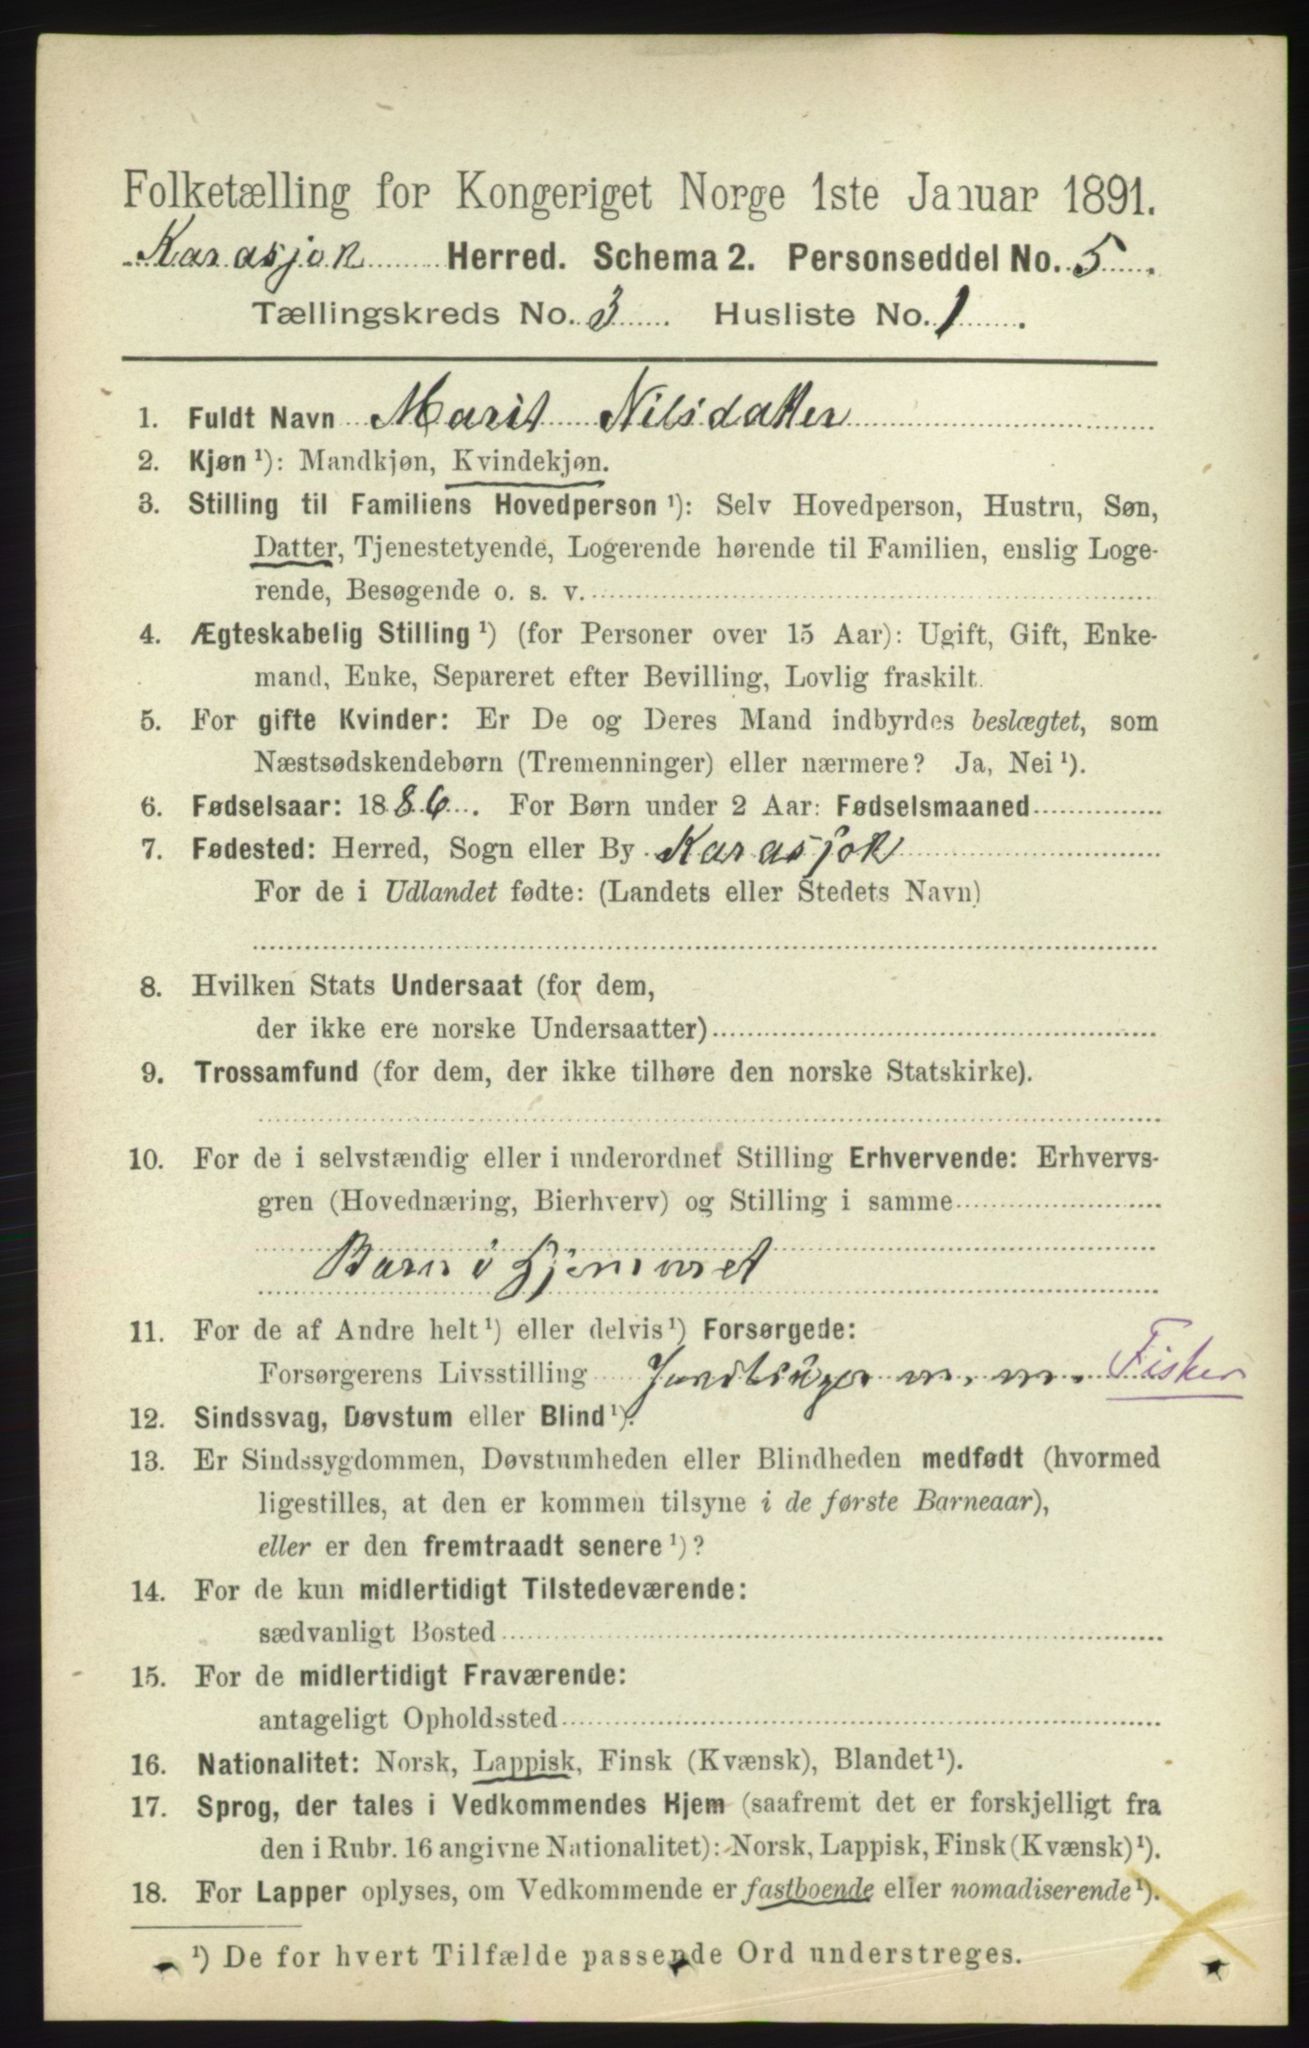 Folketælling for Kongeriget Norge 1ste Januar 1891.
Karasjok Herred. Schema 2. Personseddel No. 5.
Tællingskreds No. 3 Husliste No. 1.
1. Fuldt Navn Marit Nilsdatter
2. Kjøn¹): Mandkjøn, Kvindekjøn.
3. Stilling til Familiens Hovedperson¹): Selv Hovedperson, Hustru, Søn,
Datter, Tjenestetyende, Logerende hørende til Familien, enslig Loge-
rende, Besøgende o. s. v.
4. Ægteskabelig Stilling¹) (for Personer over 15 Aar): Ugift, Gift, Enke-
mand, Enke, Separeret efter Bevilling, Lovlig fraskilt.
5. For gifte Kvinder: Er De og Deres Mand indbyrdes beslægtet, som
Næstsødskendebørn (Tremenninger) eller nærmere? Ja, Nei¹).
6. Fødselsaar: 1886. For Børn under 2 Aar: Fødselsmaaned
7. Fødested: Herred, Sogn eller By Karasjok
For de i Udlandet fødte: (Landets eller Stedets Navn)
8. Hvilken Stats Undersaat (for dem,
der ikke ere norske Undersaatter)
9. Trossamfund (for dem, der ikke tilhøre den norske Statskirke).
10. For de i selvstændig eller i underordnet Stilling Erhvervende: Erhvervs-
gren (Hovednæring, Bierhverv) og Stilling i samme
Barn i Hjemmet
11. For de af Andre helt¹) eller delvis¹) Forsørgede:
Forsørgerens Livsstilling m. m. Fisker
12. Sindssvag, Døvstum eller Blind¹).
13. Er Sindssygdommen, Døvstumheden eller Blindheden medfødt (hvormed
ligestilles, at den er kommen tilsyne i de første Barneaar),
eller er den fremtraadt senere¹)?
14. For de kun midlertidigt Tilstedeværende:
sædvanligt Bosted
15. For de midlertidigt Fraværende:
antageligt Opholdssted
16. Nationalitet: Norsk, Lappisk, Finsk (Kvænsk), Blandet¹).
17. Sprog, der tales i Vedkommendes Hjem (saafremt det er forskjelligt fra
den i Rubr. 16 angivne Nationalitet): Norsk, Lappisk, Finsk (Kvænsk)¹).
18. For Lapper oplyses, om Vedkommende er fastboende eller nomadiserende¹).
¹) De for hvert Tilfælde passende Ord understreges.